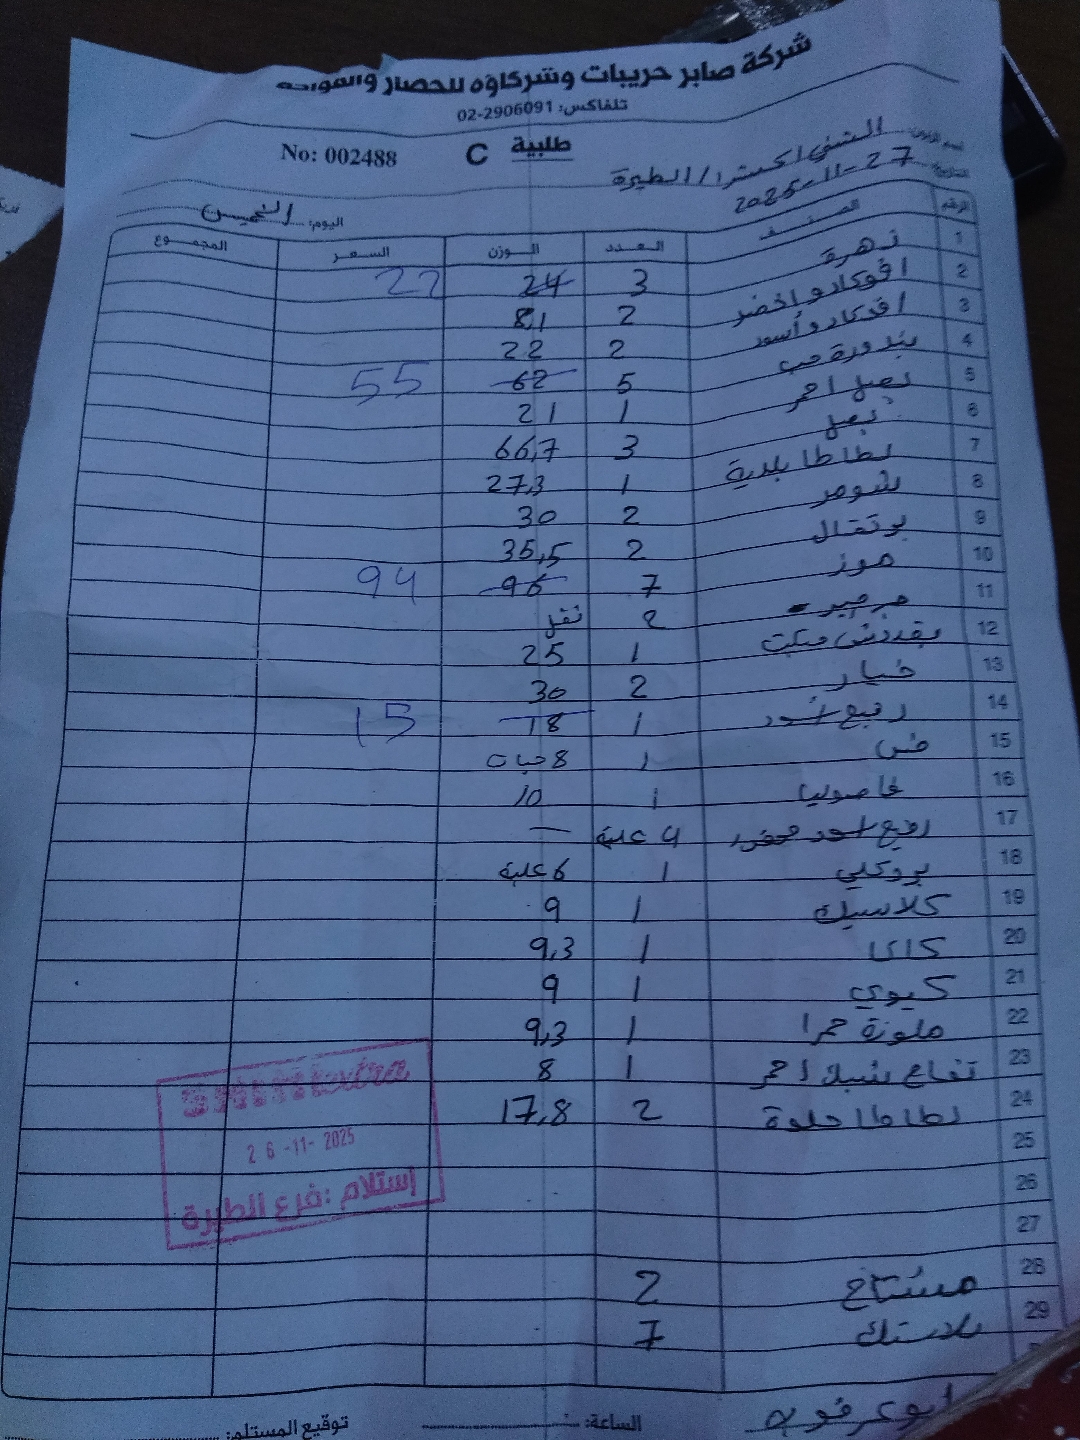 شركة صابر حريبات وشركاؤه للخضار والفواكه
تلفاكس: 02-2906091
طلبية C No: 002488
الشني اكسترا / الطيرة
2025-11-27
اليوم: الخميس
الرقم الصنف العدد الوزن السعر المجموع
1 زهرة 3 24 22
2 افوكادو اخضر 2 8,1
3 افوكادو أسود 2 22
4 بندورة حب 5 62 55
5 بصل احمر 1 21
6 بصل 3 66,7
7 بطاطا بلدية 1 27,3
8 شومر 2 30
9 برتقال 2 35,5
10 موز 7 96 94
11 جرجير 2
12 بقدونس 1 25
13 خيار 2 30
14 رفيع اسود 1 18 15
15 خس 1 8 حبات
16 فاصوليا 1 10
17 رفيع اسود 4 علبة —
18 بروكلي 1 6 علبة
19 كلاسيك 1 9
20 كاكا 1 9,3
21 كيوي 1 9
22 حمرا 1 9,3
23 تفاح احمر 1 8
24 بطاطا حلوة 2 17,8
25
26
27
28 مشتاح 2
29 بلاستك 7
SHINI extra
26-11-2025
إستلام: فرع الطيرة
الساعة: توقيع المستلم: